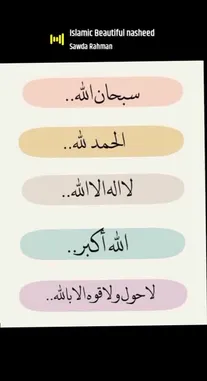 Islamic Beautiful nasheed
Sawda Rahman
سبحان الله..
الحمد لله..
لا اله الا الله..
الله أكبر..
لا حول ولا قوه الا بالله..